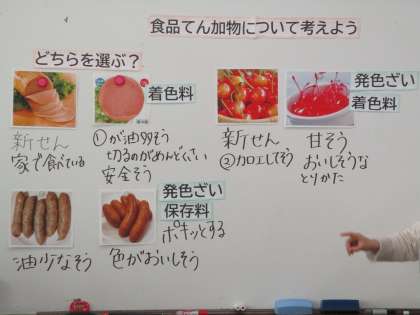 食品てん加物について考えよう
どちらを選ぶ?
着色料
新せん
家で食べている
①が油多そう
切るのがめんどくさい
安全そう
発色ざい
着色料
新せん
②カロエしてそう
甘そう
おいしそうな
とりかた
発色ざい
保存料
油少なそう
色がおいしそう
ポキッとする